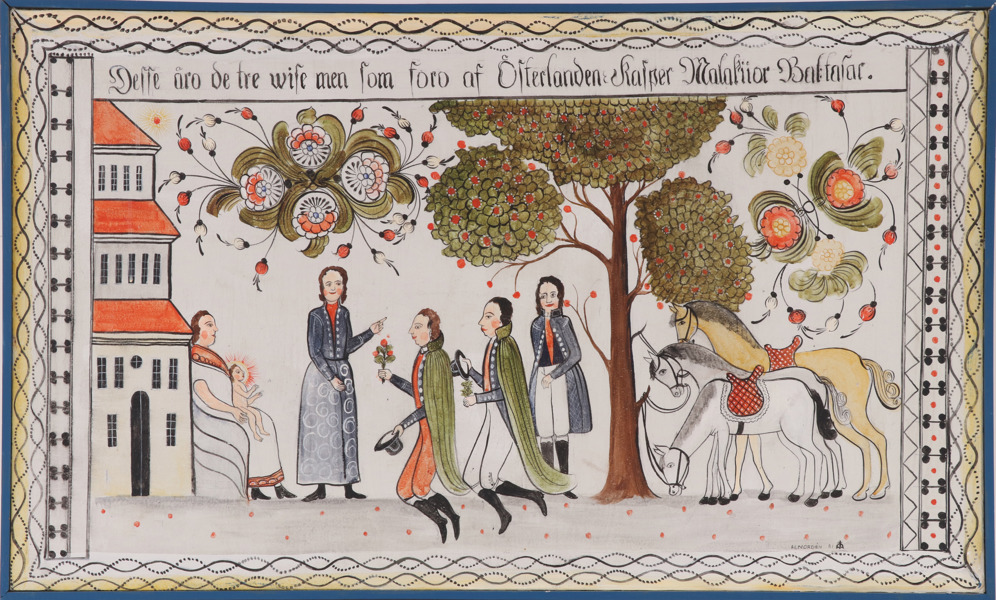 Desse äro de tre wise men som foro af Österlanden: Kasper Malakiior Baltasar.